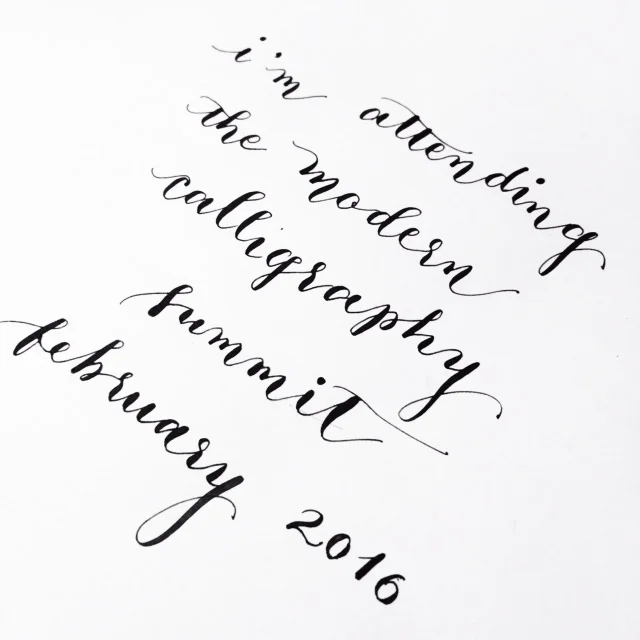 i'm attending
the modern
calligraphy
summit
february 2016